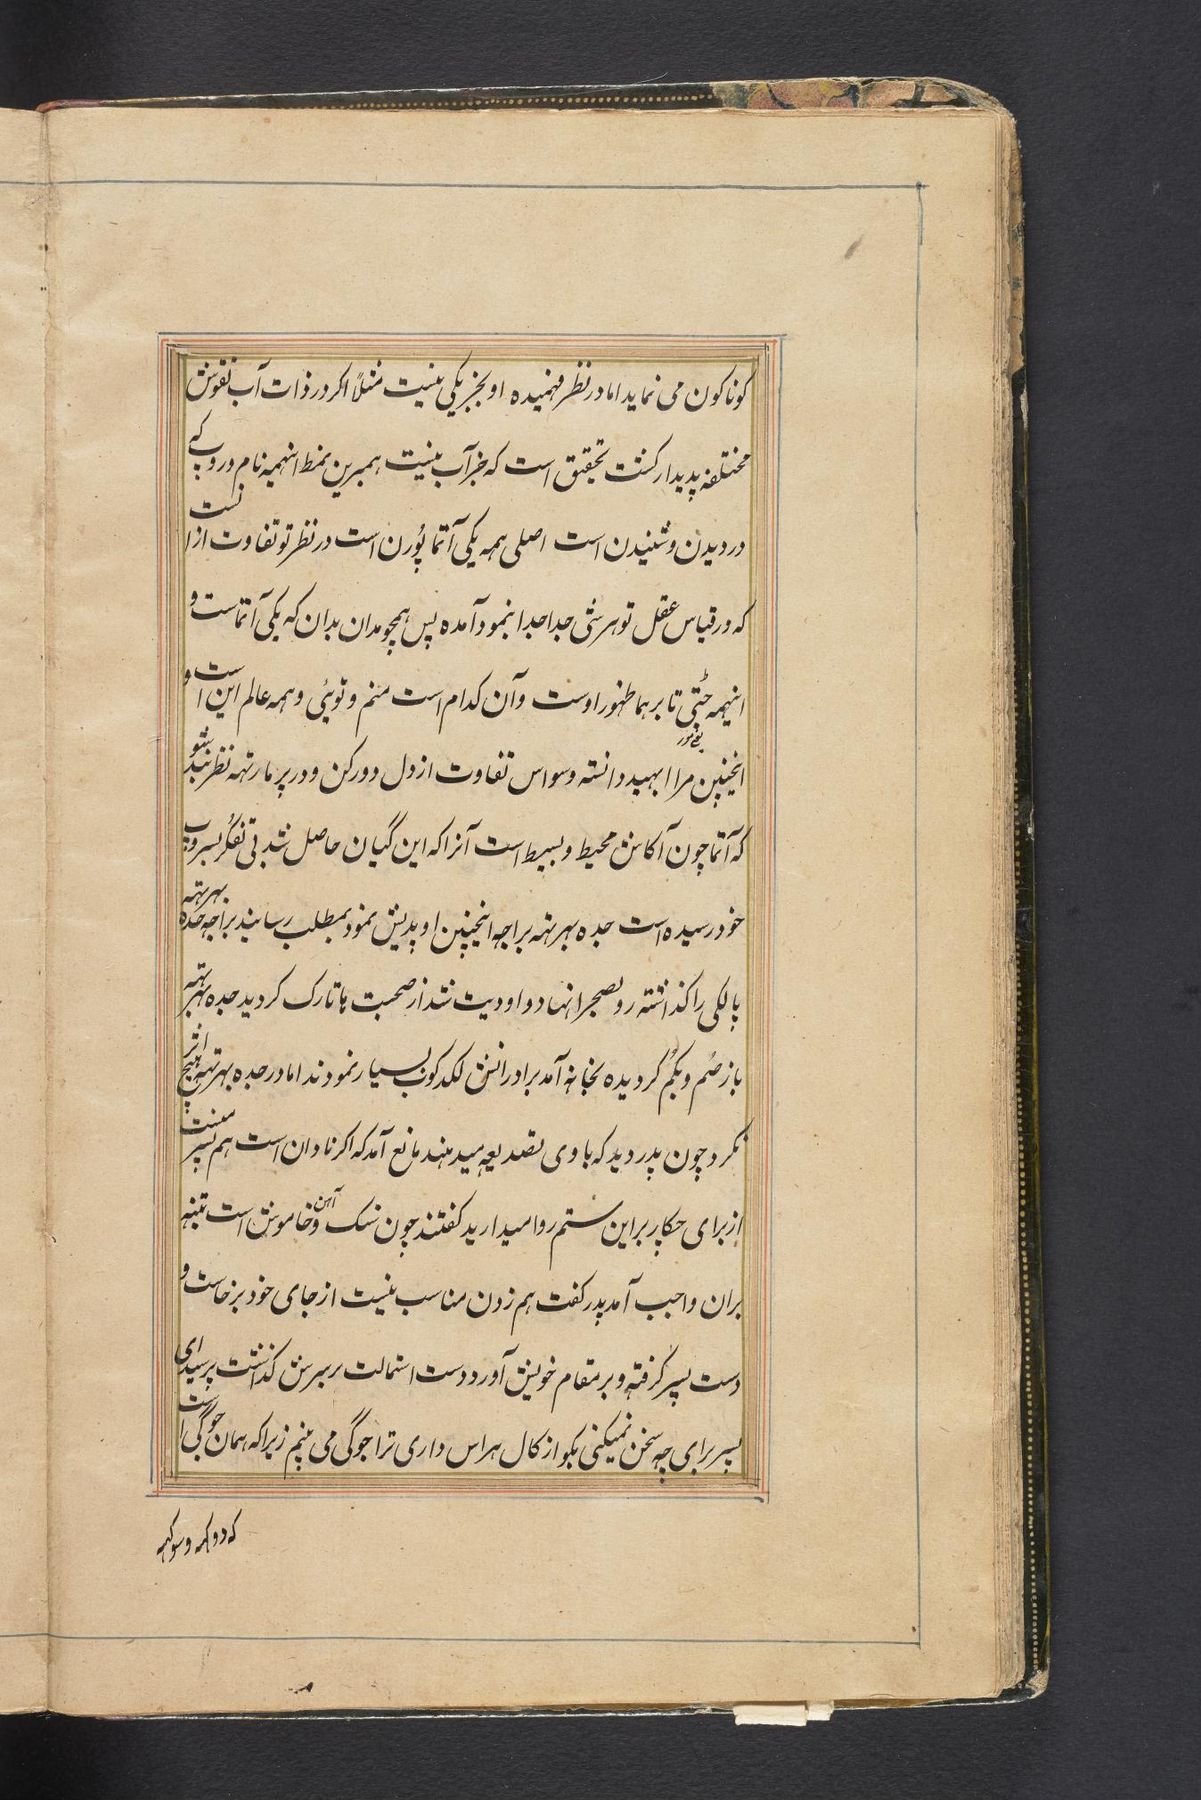 کوناکون می نماید اما در نظر فهمیده او بجز یکی نیست مثلاً اکر در ذات آب نقوش
مختلفه پدیدار کشت تحقیق است که جز آب نیست همبرین نمط اینهمه نام و روپ که
در دیدن و شنیدن است اصلی همه یکی آتما پُورن است در نظر تو تفاوت ازانست
که در قیاس عقل تو هر شی جدا جدا بنمود آمده پس همچو مدان بدان که یکی آتماست و
اینهمه چنتی تا برهما ظهور اوست و آن کدام است منم و توئی و همه عالم این است و
اینچنین مرا ابهید دانسته وسواس تفاوت از دل دور کن و در پرمارتهه نظر بند شو
که آتما چون آکاش محیط و بسیط است آنرا که این گیان حاصل شد بی تفکر بسروپ
خود رسیده است جده بهرتهه براجه اینچنین اوپدیش نمود بمطلب رسانید براجه جده بهرتهه
پالکی را کذاشته رو بصحرا نهاد و اودیت شد از صحبت ها تارک کردید جده بهرتهه
باز صُم و بکُم گردیده بخانه آمد برادرانش لکدکوب بسیار نمودند اما در جده بهرتهه هیچ اثر
نکرد چون پدر دید که با وی تصدیعه میدهند مانع آمد که اکر نادان است هم پسر منست
از برای چکار بر این ستم روا میدارید کفتند چون سنک و آهن خاموش است تنبیه
بران واجب آمد پدر کفت هم زدن مناسب نیست از جای خود برخاست و
دست پسر گرفته و بر مقام خویش آورد دست استمالت بر سرش کذاشت پرسید ای
پسر برای چه سخن نمیکنی بکو از کال هراس داری ترا جوگی می بینم زیرا که همان جوگی است
که دوکهه و سوکهه